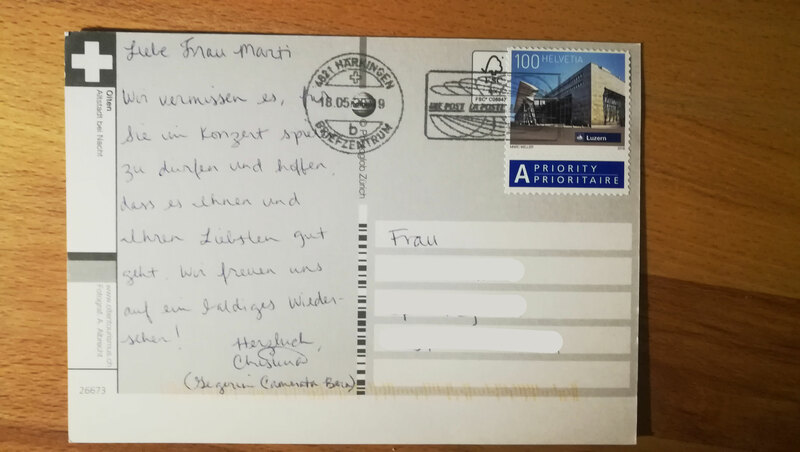 Liebe Frau Marti
Wir vermissen es, für
Sie im Konzert spielen
zu dürfen und hoffen,
dass es Ihnen und
Ihren Liebsten gut
geht. Wir freuen uns
auf ein baldiges Wieder-
sehen!
Herzlich,
Christina
(Geigerin Camerata Bern)
Olten
Altstadt bei Nacht
www.oltentourismus.ch
Fotograf: A. Albrecht
26673
4621 HÄRKINGEN
18.05.
9
b
BRIEFZENTRUM
DIE POST LA POSTE
FSC® C008847
100 HELVETIA
Luzern
A PRIORITY
PRIORITAIRE
Zürich
Frau